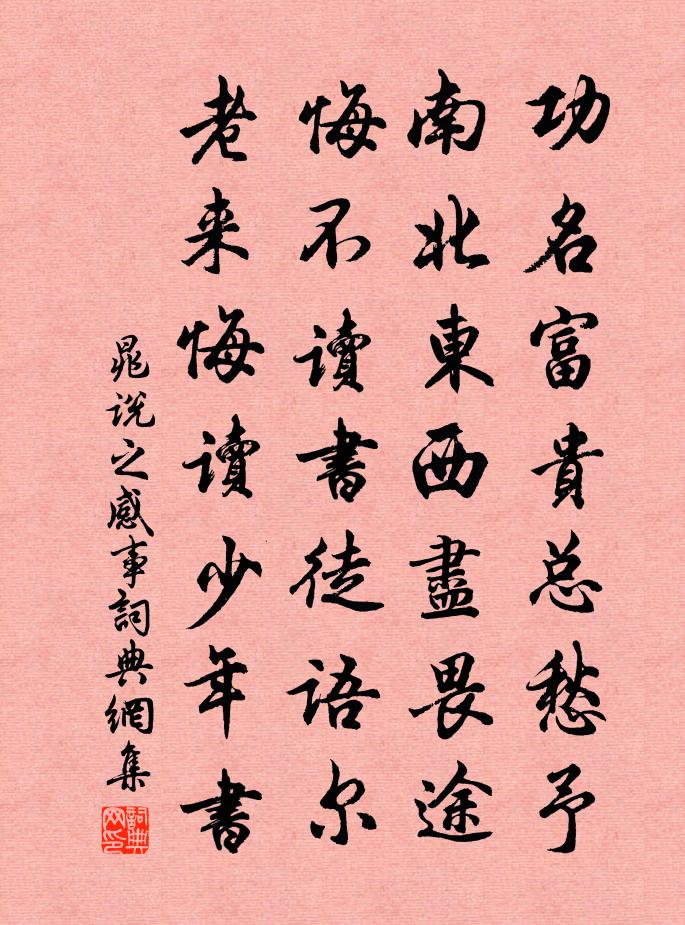 功名富貴总愁予
南北東西盡畏途
悔不讀書徒語尔
老来悔讀少年書
晁说之感事詞典網集
詞典网印